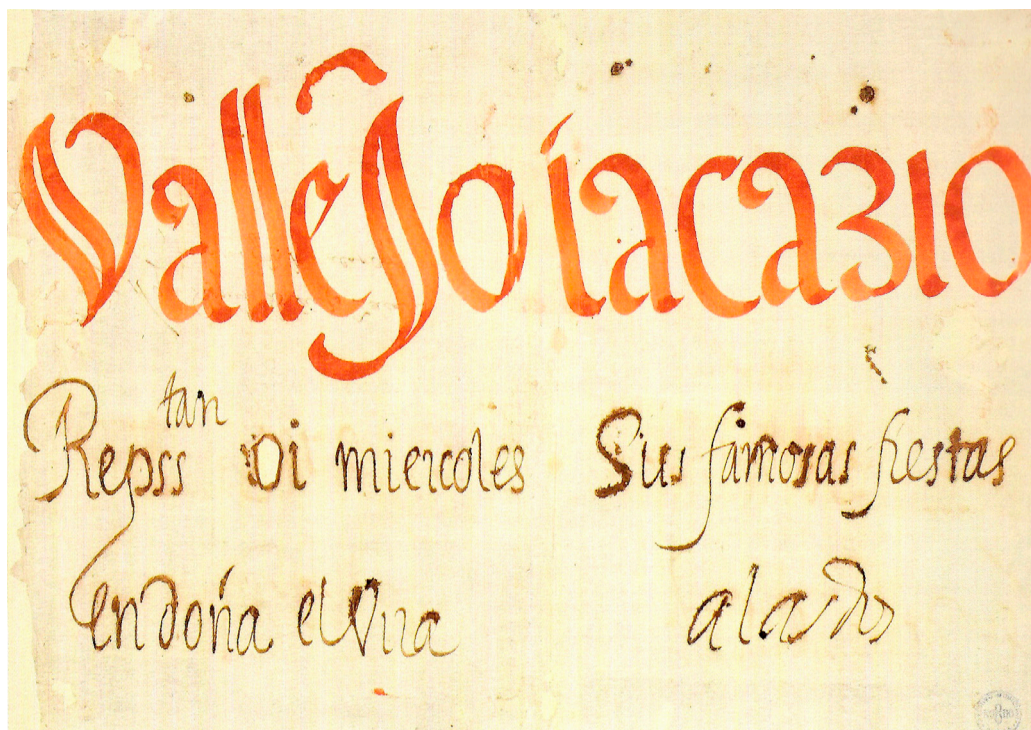 Vallejo i acazio
tan
Repss oi miercoles Sus famosas fiestas
en doña elvira a las dos